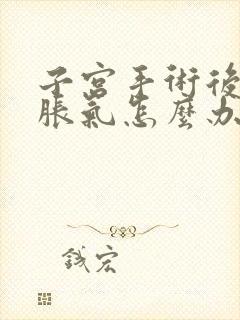 子宮手術後
脹氣怎麼办
鈛宏